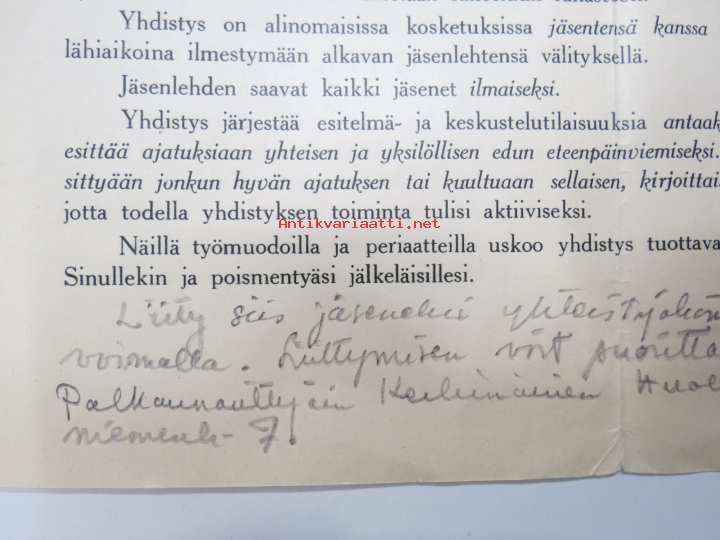 Yhdistys on alinomaisissa kosketuksissa jäsentensä kanssa
lähiaikoina ilmestymään alkavan jäsenlehtensä välityksellä.
Jäsenlehden saavat kaikki jäsenet ilmaiseksi.
Yhdistys järjestää esitelmä- ja keskustelutilaisuuksia antaak
esittää ajatuksiaan yhteisen ja yksilöllisen edun eteenpäinviemiseksi.
sittyään jonkun hyvän ajatuksen tai kuultuaan sellaisen, kirjoittai
jotta todella yhdistyksen toiminta tulisi aktiiviseksi.
Antikvariaatti.net
Näillä työmuodoilla ja periaatteilla uskoo yhdistys tuottava
Sinullekin ja poismentyäsi jälkeläisillesi.
Liity siis jäseneksi yhteistyöhön
voimalla. Liittymisen voit suoritta
Palkannauttijain Keskinäinen Huol
niemenk- 7.